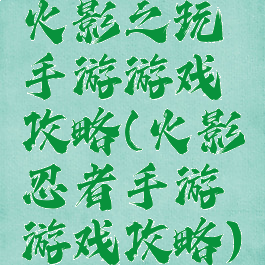 火影之玩
手游游戏
攻略(火影
忍者手游
游戏攻略)